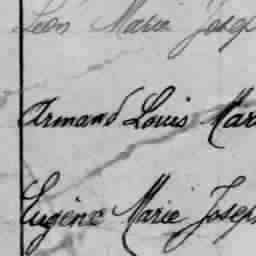 Léon Marie Josep
Armand Louis Mar
Eugène Marie Joseph